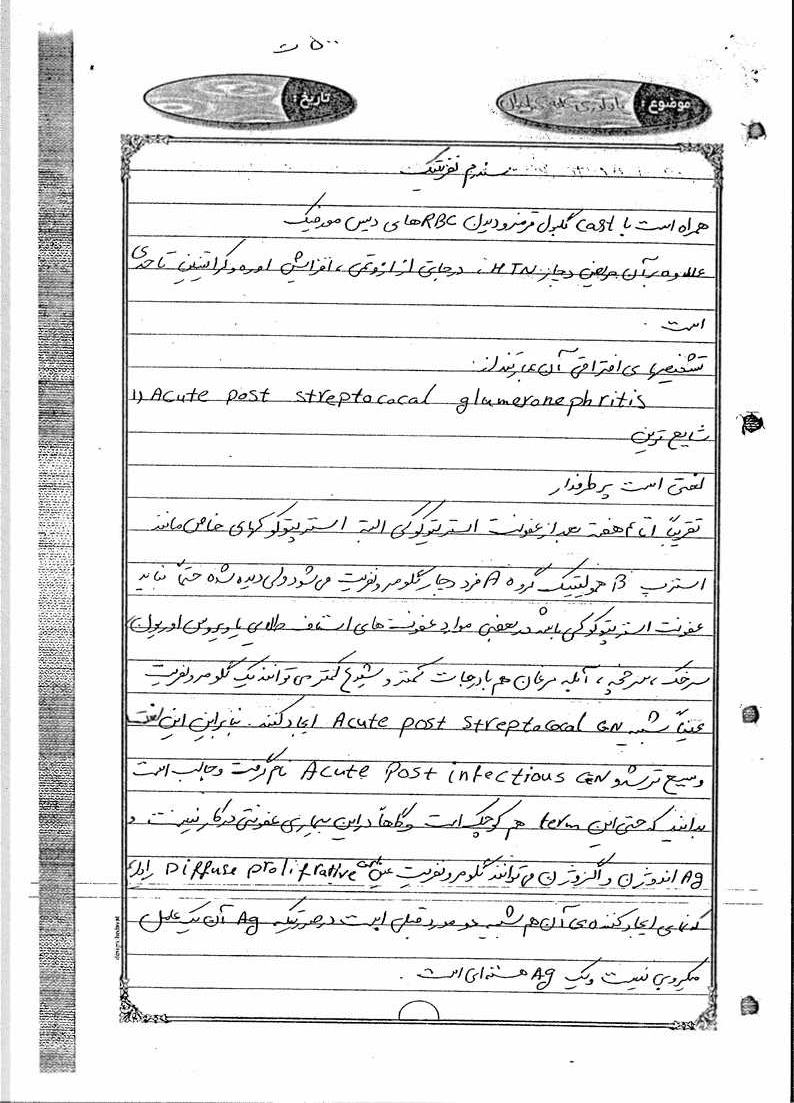 ۵۰۰ ت
موضوع:
تاریخ:
سندرم نفریتیک
همراه است با cast گلبول قرمز و دیدن RBC های دیس مورفیک
علاوه بر آن مریض دچار HTN ، درجاتی از ازوتمی ، افزایش اوره و کراتینین تا حدی
است .
تشخیصهای افتراقی آن عبارتند از:
1) Acute post streptococal glumeronephritis
شایع ترین
لغتی است پرطرفدار
تقریباً ۱ تا ۴ هفته بعد از عفونت استرپتوکوکی البته استرپتوکوکهای خاص مانند
استرپ B همولیتیک گروه A فرد دچار گلومرونفریت می شود ولی دیده شده حتماً نباید
عفونت استرپتوکوکی باشد در بعضی موارد عفونت های استاف طلایی یا ویروس اوریون
سرخک ، سرخجه ، آبله مرغان هم با درجات کمتر و شیوع کمتر می توانند یک گلومرونفریت
عیناً شبیه Acute post streptococal GN ایجاد کنند. بنابراین این لغت
وسیع تر شد و Acute Post infectious GN نام گرفت و جالب است
بدانید که حتی این term هم کوچک است و گاهاً در این بیماری عفونتی در کار نیست و
Ag اندوژن و اگزوژن می توانند گلومرونفریت عین Diffuse prolifrative GN را دارند
کمپلکس ایجاد کننده ی آن هم شبیه دو مورد قبلی است در صورتیکه Ag آن یک عامل
میکروبی نیست و یک Ag هسته ای است .